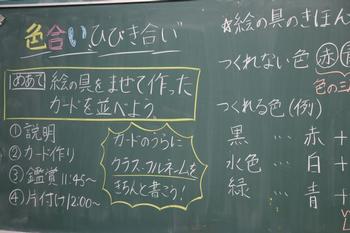 色合い ひびき合い
めあて 絵の具をまぜて作った
カードを並べよう。
①説明
②カード作り
③鑑賞 11:45～
④片付け 12:00～
カードのうらに
クラス・フルネームを
きちんと書こう!
☆絵の具のきほん
つくれない色 赤
色の三
つくれる色(例)
黒 … 赤 +
水色 … 白 +
緑 … 青 +